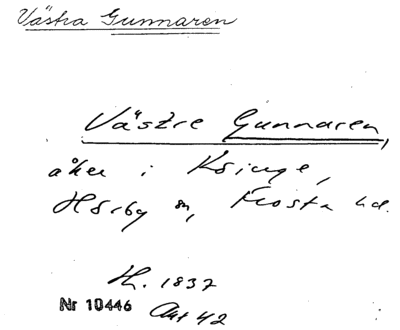 Västra Gunnaren
Västre Gunnaren,
åker i Ksinge,
Hörby sn, Frosta hd.
H. 1837
Nr 10446 Akt 42